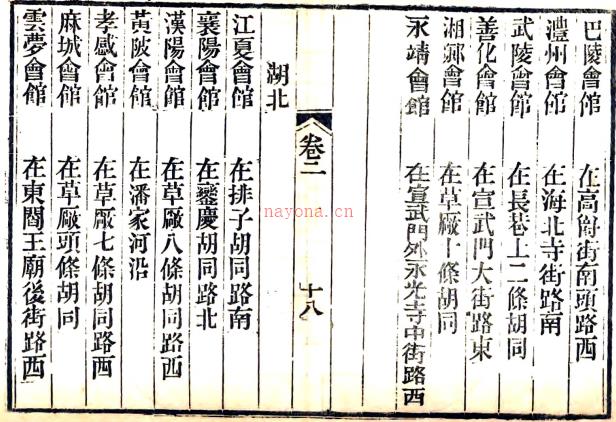 巴陵會館 在高廟街南頭路西
澧州會館 在海北寺街路南
武陵會館 在長巷上二條胡同
善化會館 在宣武門大街路東
湘鄉會館 在草厰十條胡同
永靖會館 在宣武門外永光寺中街路西
卷二 十八
湖北
江夏會館 在排子胡同路南
襄陽會館 在鑾慶胡同路北
漢陽會館 在草厰八條胡同路西
黃陂會館 在潘家河沿
孝感會館 在草厰七條胡同路西
麻城會館 在草厰頭條胡同
雲夢會館 在東閻王廟後街路西
nayona.cn